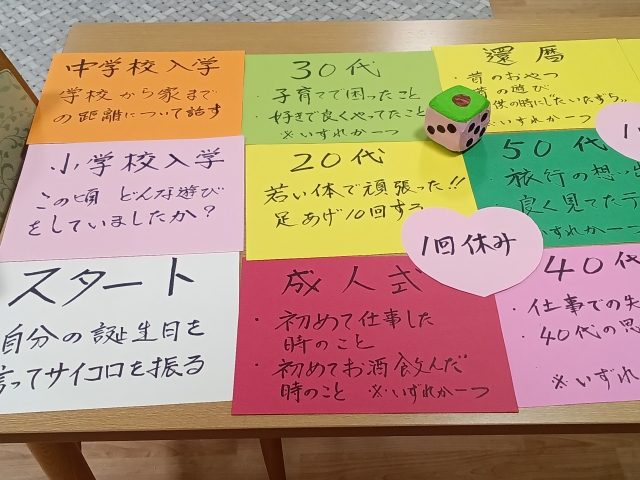 中学校入学
学校から家まで
の距離について話す
30代
・子育てで困ったこと
・好きで良くやってたこと
※いずれか一つ
還暦
・昔のおやつ
昔の遊び
供の時にしたいたずら
※いずれか一つ
小学校入学
この頃 どんな遊び
をしていましたか?
20代
若い体で頑張った!!
足あげ10回する
50代
・旅行の想い出
・良く見てたテ
いずれか一つ
1回休み
スタート
自分の誕生日を
言ってサイコロを振る
成人式
・初めて仕事した
時のこと
・初めてお酒飲んだ
時のこと ※いずれか一つ
40代
・仕事での失
・40代の思
※いずれ